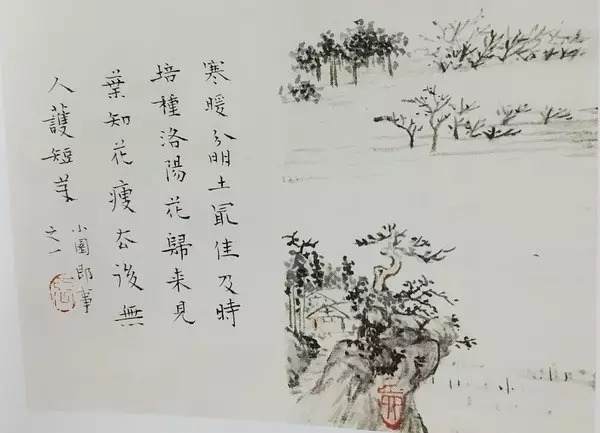 寒暖分明土冣佳及時
培種洛陽花歸来見
葉知花瘦去後無
人護短芽
小園即事
之一